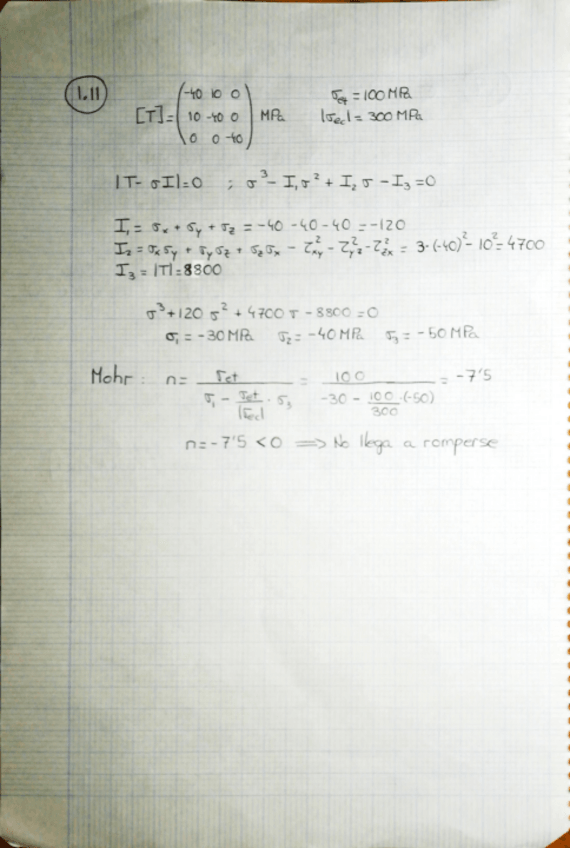 1.11
[T]= (-40 10 0 σet = 100 MPa
10 -40 0 ) MPa |σec| = 300 MPa
0 0 -40
|T- σI|=0 ; σ³- I₁σ² + I₂ σ - I₃ =0
I₁ = σx + σy + σz = -40 -40 -40 = -120
I₂ = σxσy + σyσz + σzσx - τ²xy - τ²yz - τ²zx = 3·(-40)² - 10² = 4700
I₃ = |T| = 8800
σ³+120 σ² + 4700 σ - 8800 =0
σ₁ = -30 MPa σ₂ = -40 MPa σ₃ = -50 MPa
Mohr : n = σet / (σ₁ - σet/|σec| · σ₃) = 100 / (-30 - 100/300 ·(-50)) = -7'5
n = -7'5 < 0 ⟹ No llega a romperse